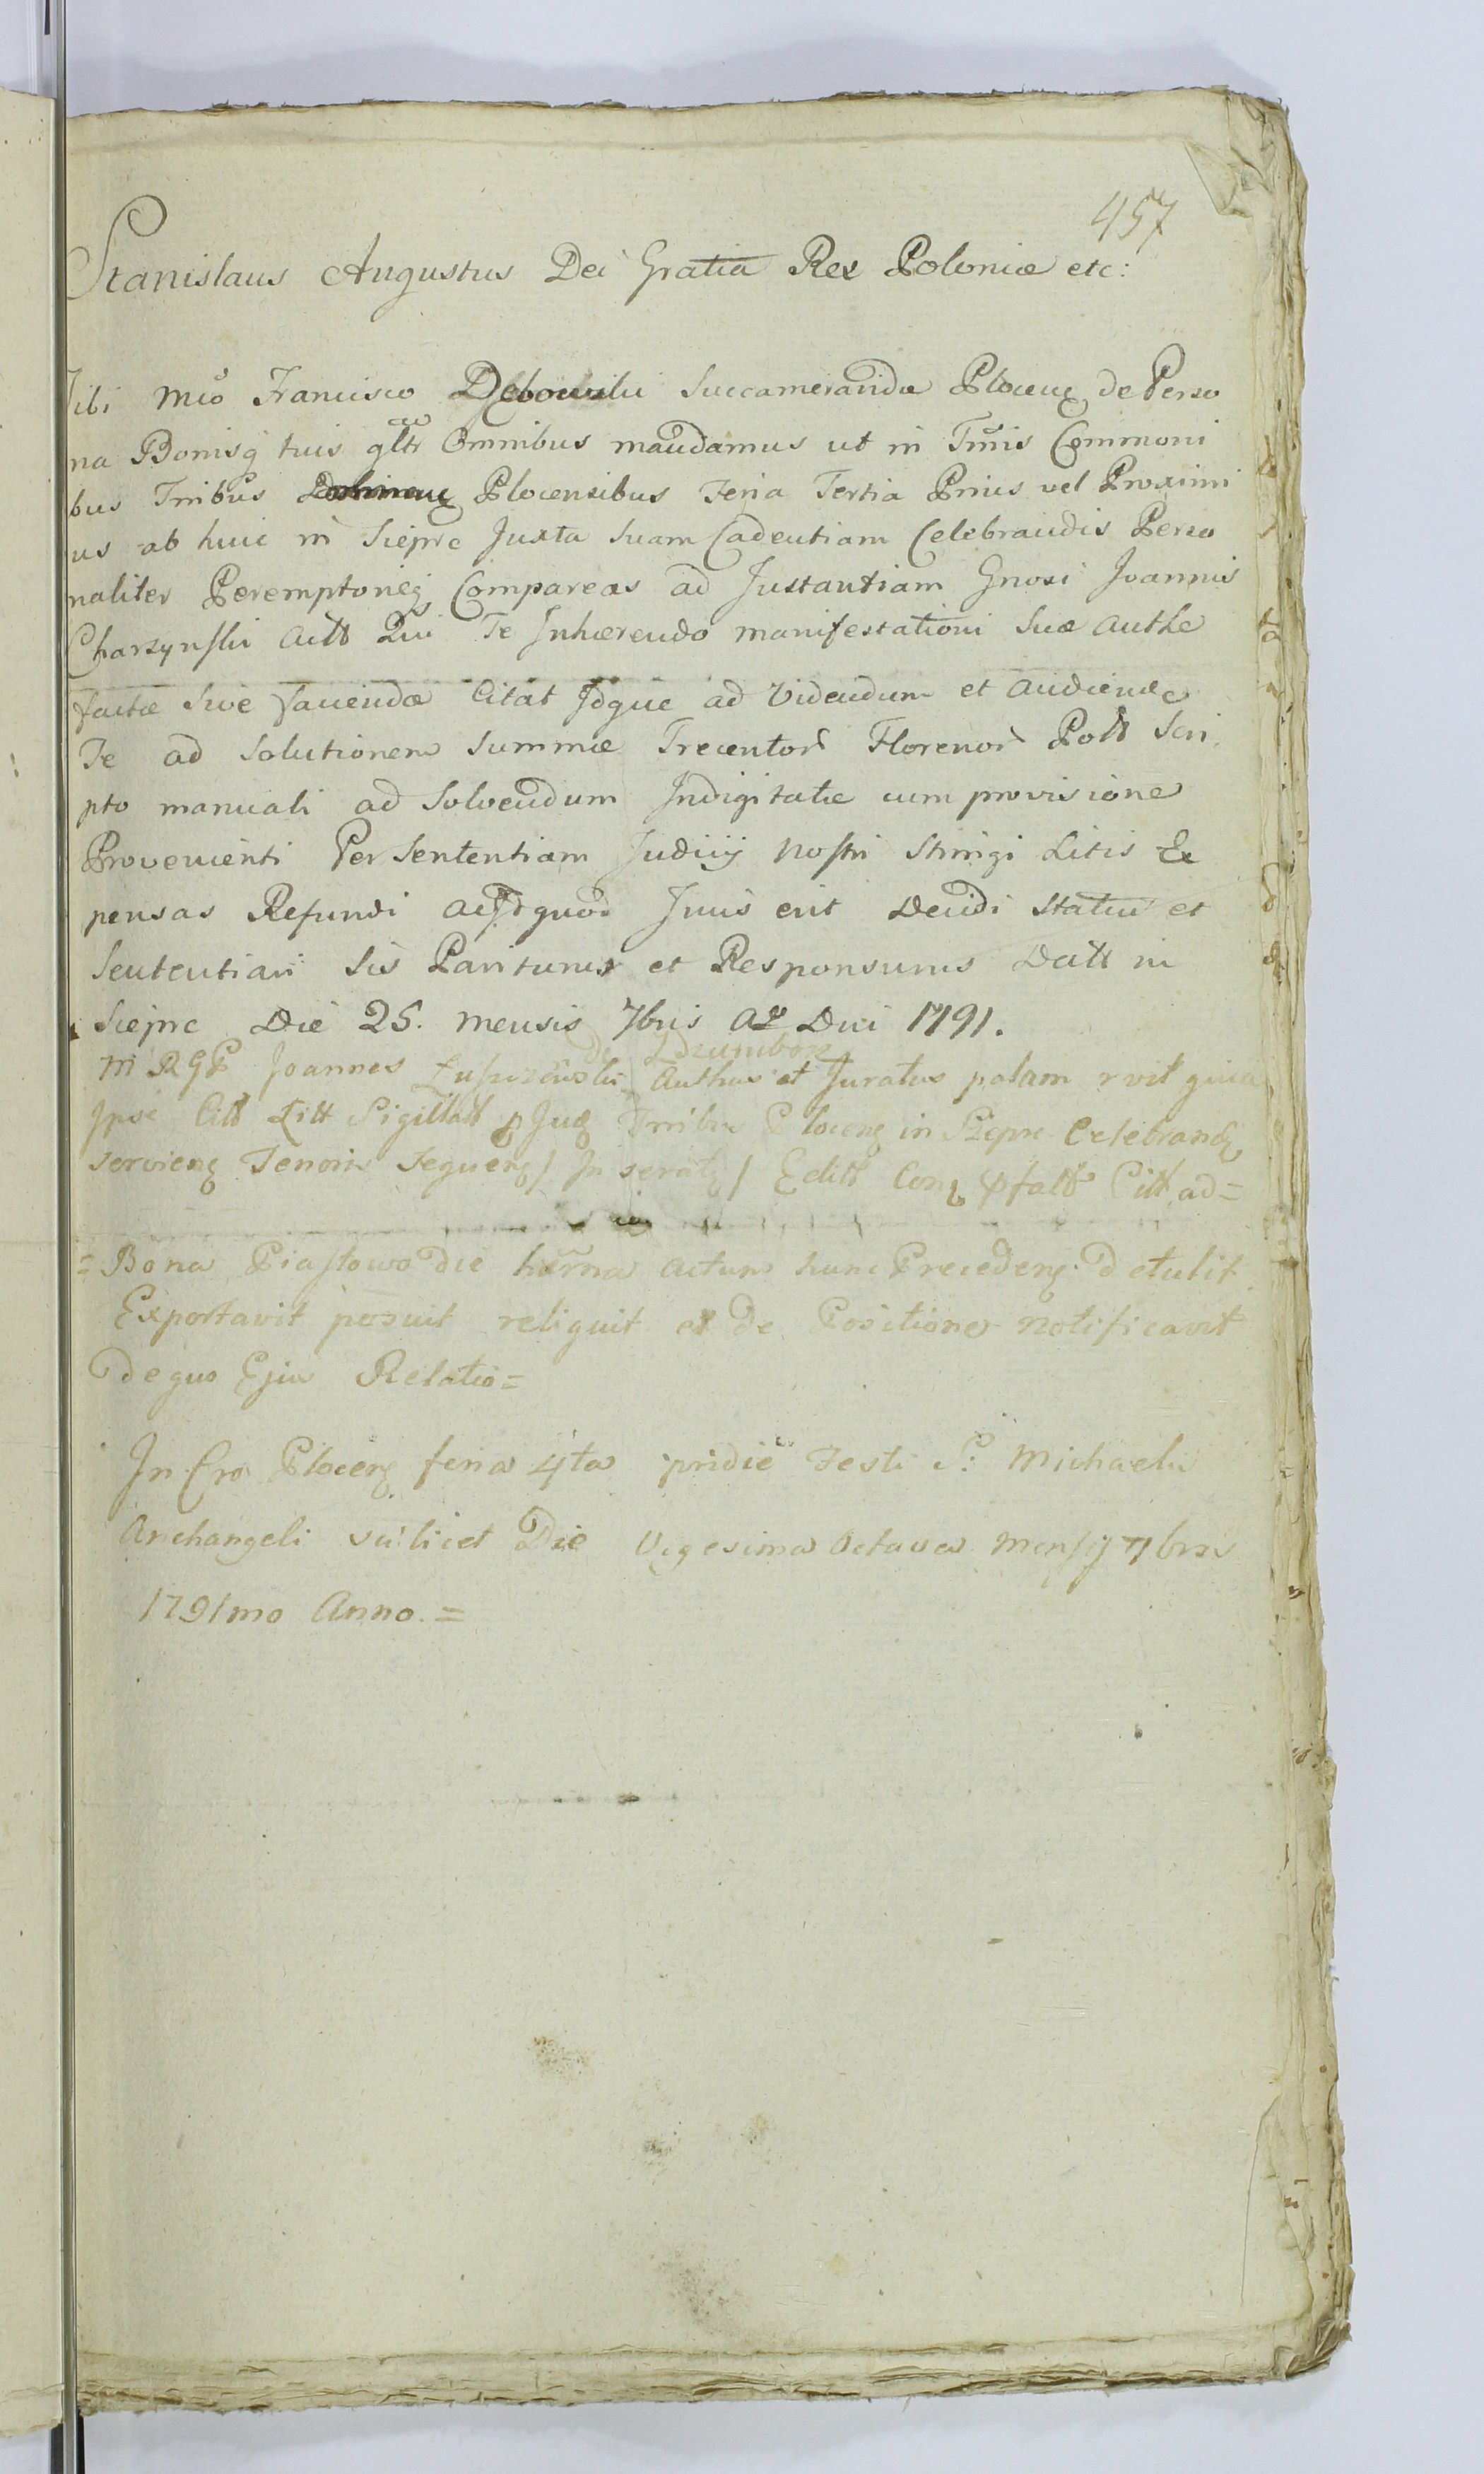 457
Stanislaus Augustus Dei Gratia Rex Poloniæ etc:
Tibi Mco Francisco Dębowski Succameraridæ Plocen de Perso
na Bonisq tuis gltr Omnibus mandamus ut in Tmis Commoni
bus Tribus Plocensibus Feria Tertia Prius vel Proximi
us ab huic in Sieprc Juxta Suam Cadentiam Celebrandis Perso
naliter Peremptorieq Compareas ad Instantiam Gnosi Joannis
Charzynski Actt Qui Te Inhærendo manifestationi Suæ Authe
factæ Sive faciendæ Citat Idque ad Videndum et Audiend
Te ad Solutionem Summæ Trecentor Florenor Poll Scri
pto manuali ad Solvendum Indigitatæ cum provisione
Provenienti Per Sententiam Judicij Nostri Stringi Litis Ex
pensas Refundi Acidquod Juris erit Decidi Statui et
Sententiari Sis Pariturus et Responsurus Datt in
Sieprc Die 25. Mensis 7bris Ao Dni 1791.
M R G P Joannes de Dziembor Authus et Juratus palam r vit quia
Ipse Citt Litt Sigillatt p Jud Tribu Plocen in Sieprc Celebrand
servien Tenoris Sequen / In serat / Editt Con Citt ad=
=Bona Piastowo die herna actum hunc Preceden detulit
Exportavit posuit reliquit et de Positione notificavit
de quo Ejus Relatio=
In Cro Plocen feria 4ta pridie Festi S: Michaelis
Archangeli scilicet Die Vigesima Octava Mensij 7bris
1791mo Anno.=